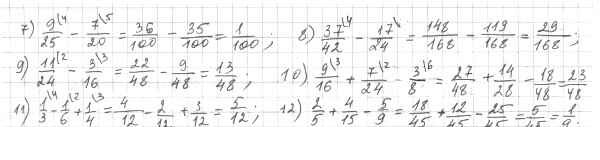 7) 9/25 \4 - 7/20 \5 = 36/100 - 35/100 = 1/100 ; 8) 37/42 \4 - 17/24 \ = 148/168 - 119/168 = 29/168 ;
9) 11/24 \2 - 3/16 \3 = 22/48 - 9/48 = 13/48 ; 10) 9/16 \3 + 7/24 \2 - 3/8 \6 = 27/48 + 14/28 - 18/48 = 23/48
11) 1/3 \4 - 1/6 \2 + 1/4 \3 = 4/12 - 2/12 + 3/12 = 5/12 ; 12) 2/5 + 4/15 - 5/9 = 18/45 + 12/45 - 25/45 = 5/45 = 1/9 .